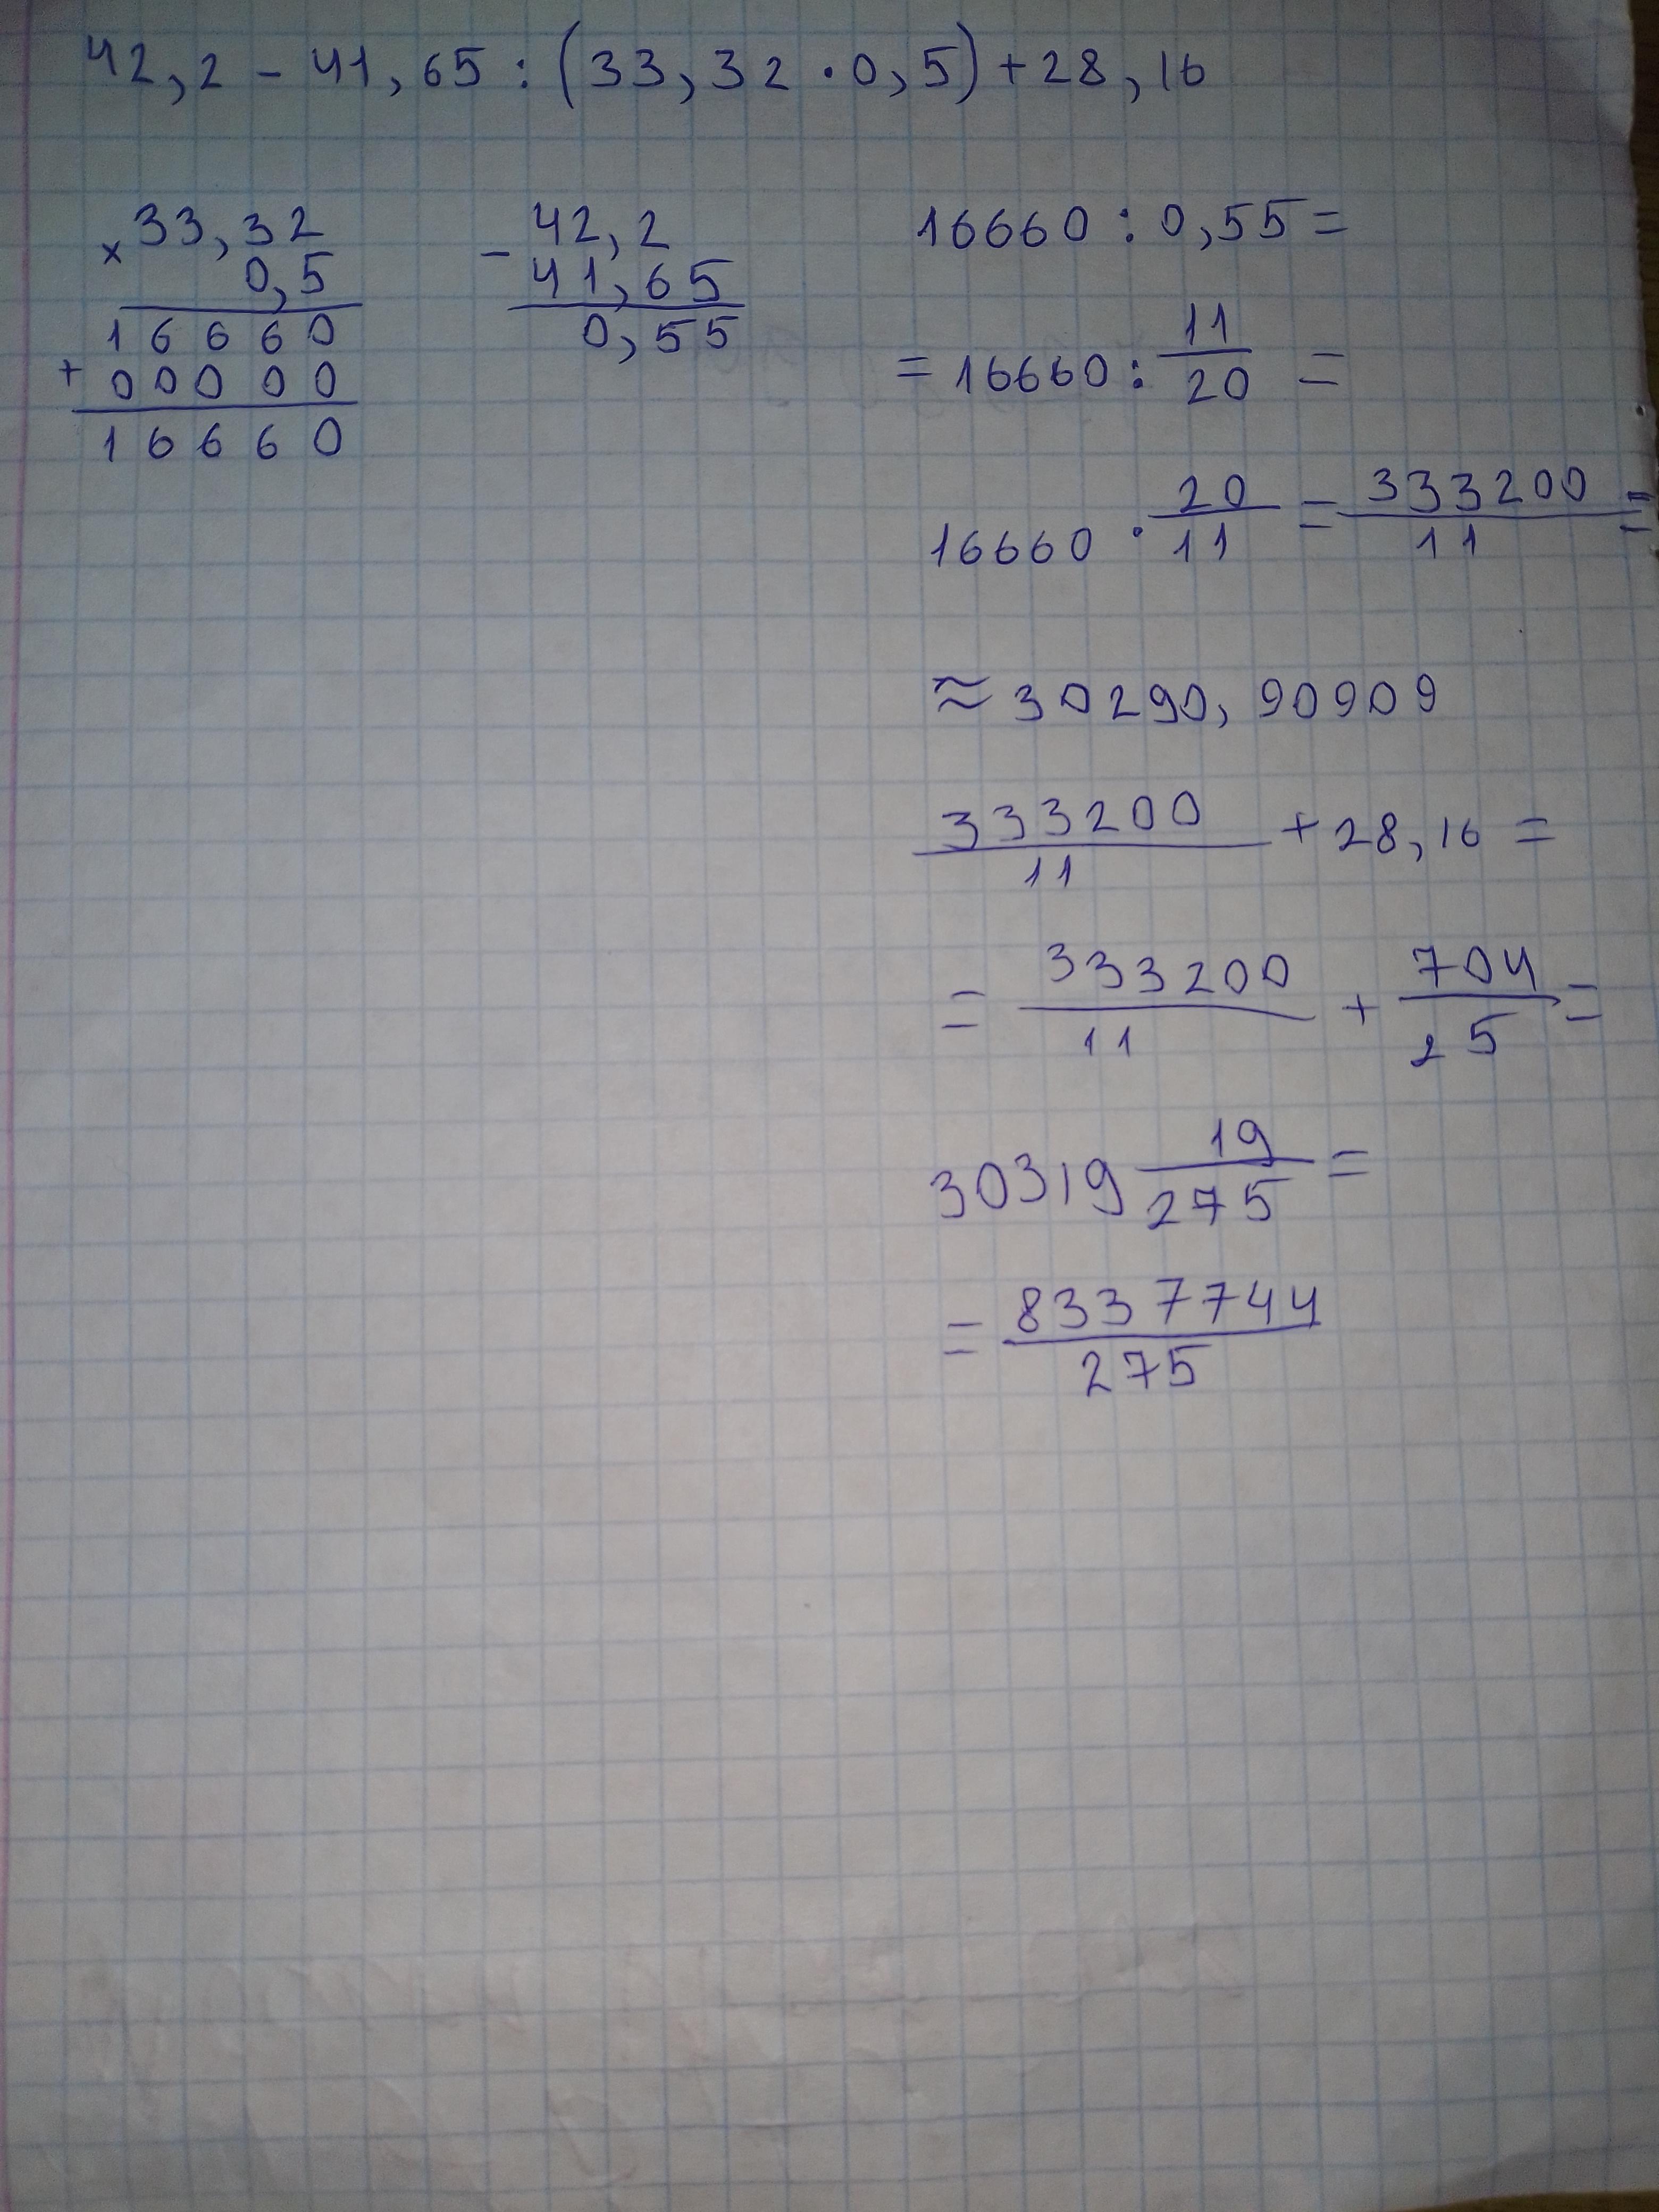 42,2 - 41,65 : (33,32 · 0,5) + 28,16
× 33,32
0,5
16660
+ 00000
16660
- 42,2
41,65
0,55
16660 : 0,55 =
= 16660 : 11/20 =
16660 · 20/11 = 333200/11 =
≈ 30290,90909
333200/11 + 28,16 =
= 333200/11 + 704/25 =
30319 19/275 =
= 8337744/275